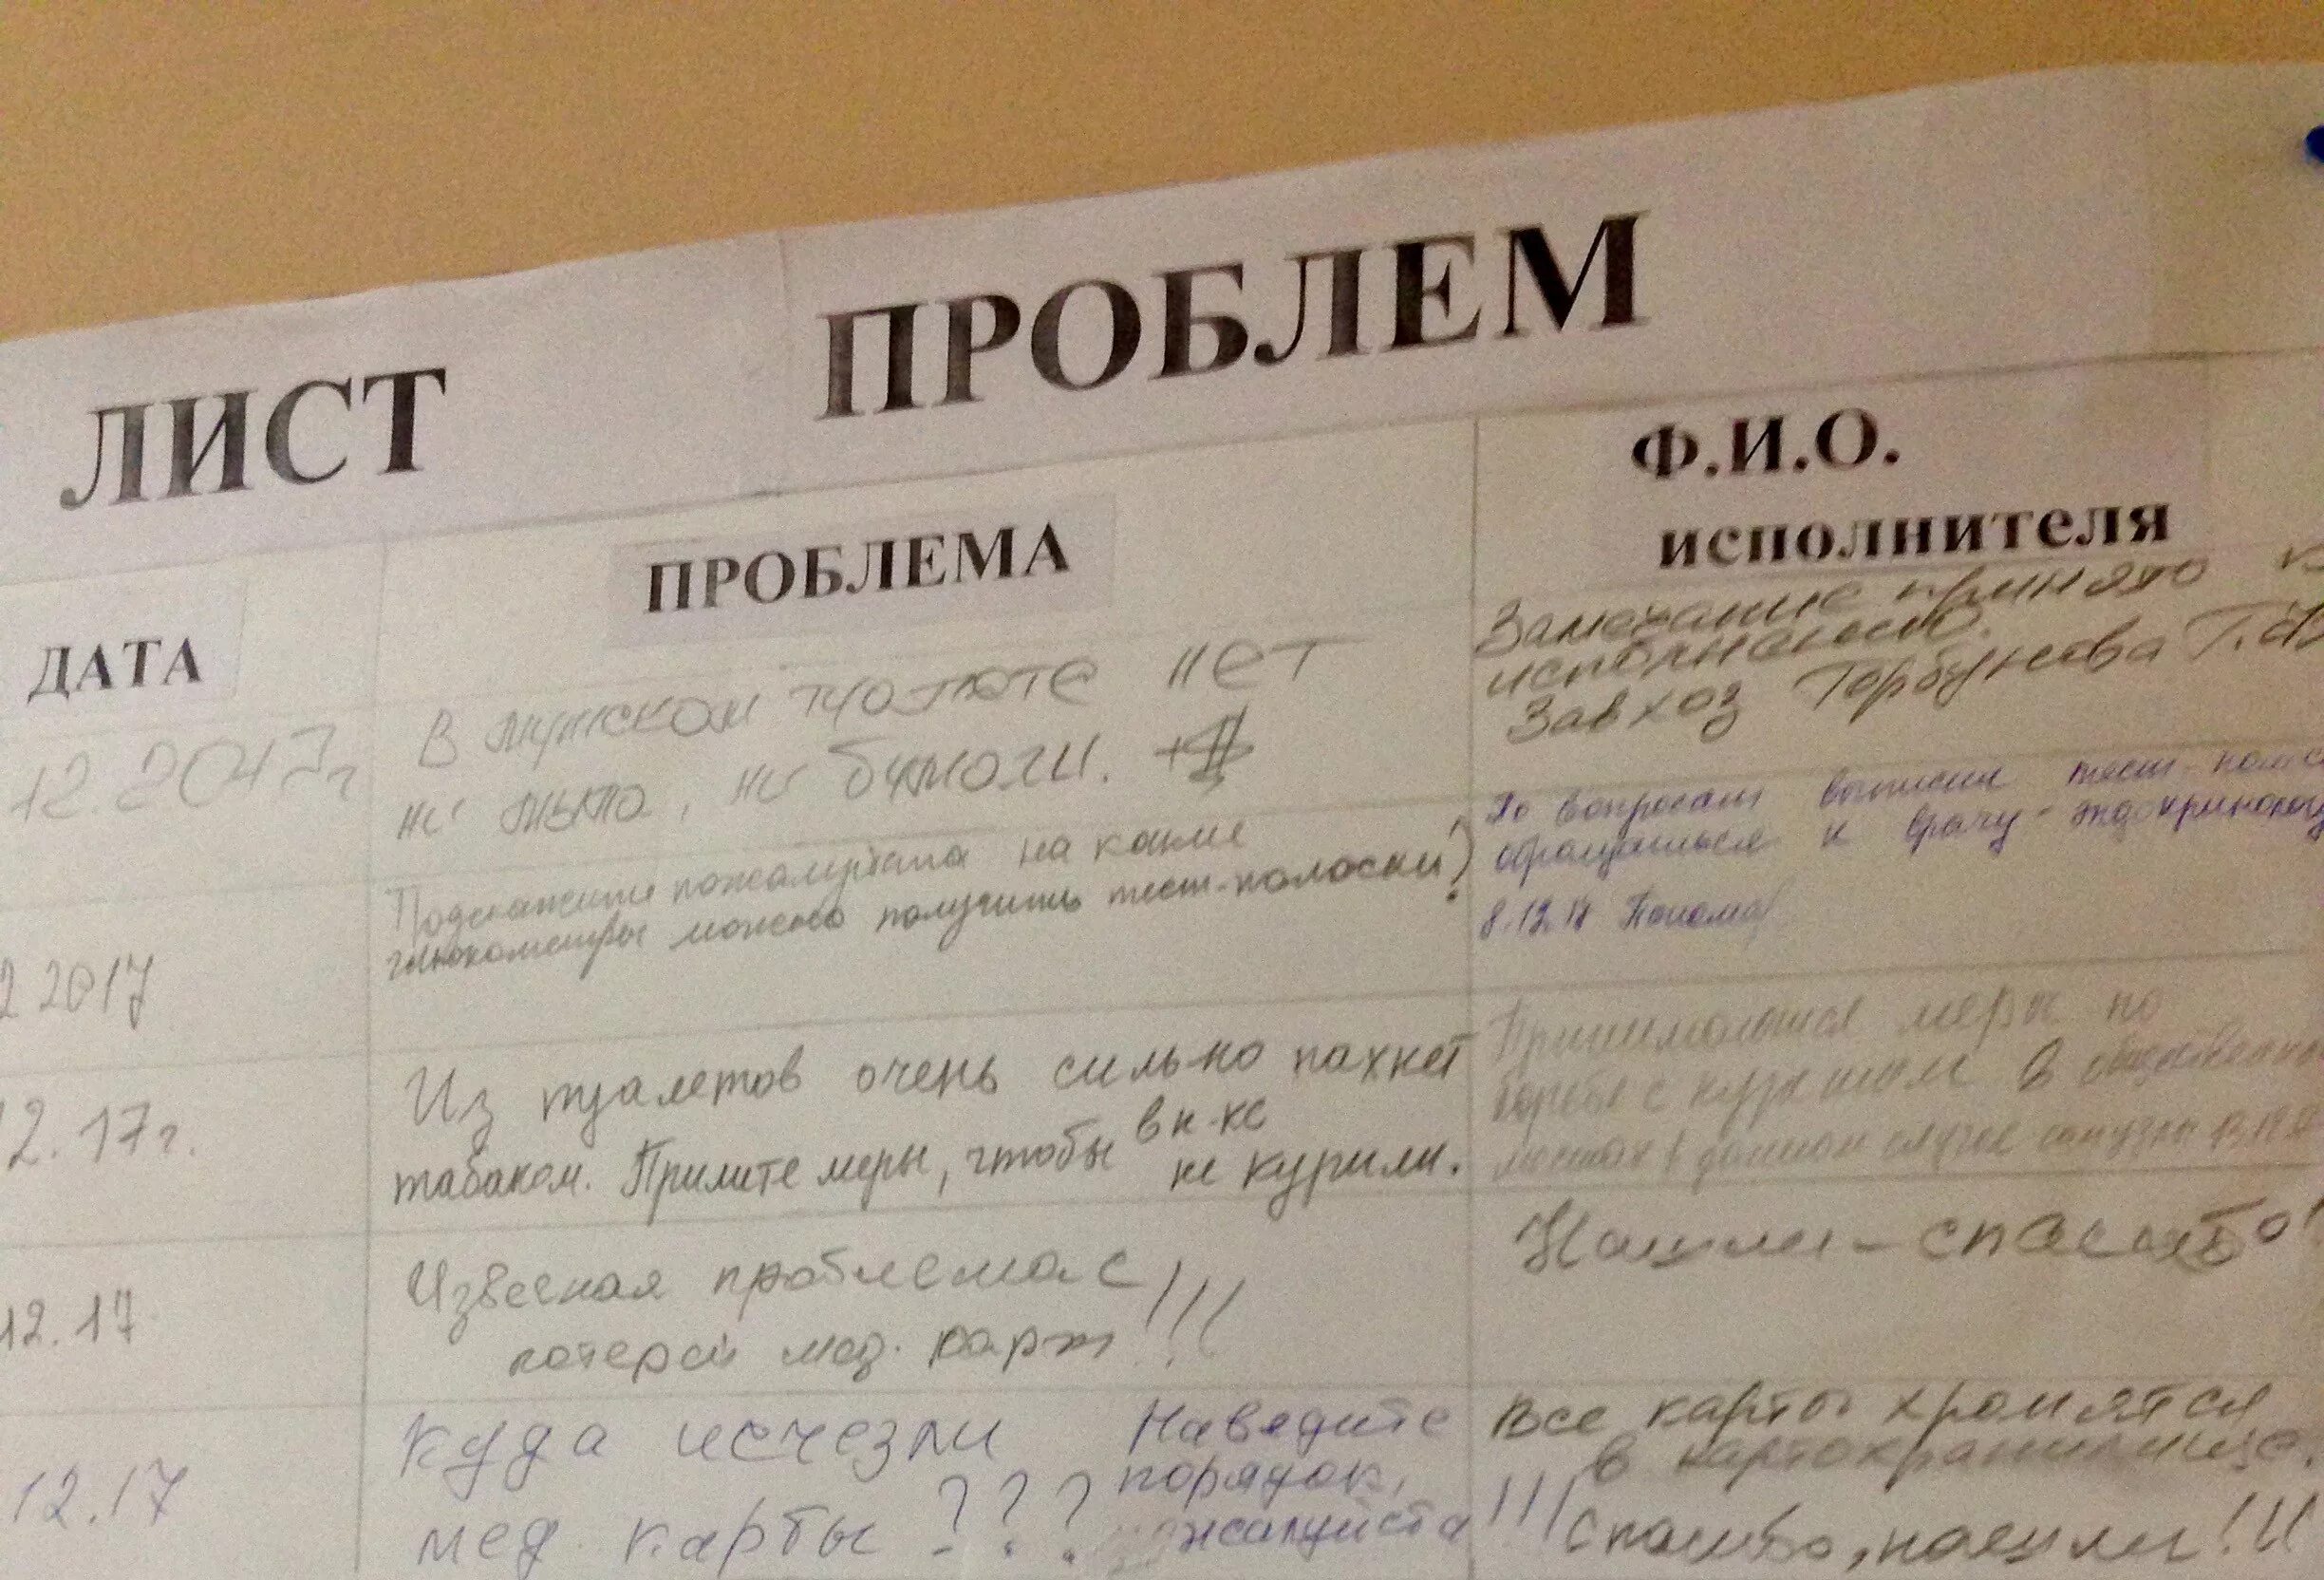 ЛИСТ ПРОБЛЕМ
ДАТА
ПРОБЛЕМА
Ф.И.О.
исполнителя
12.2017г
В мужском туалете нет
ни мыла, ни бумаги.
Замечание принято к
исполнению.
Завхоз Горбунова Т.В
2 2017
Подскажите пожалуйста на какие
глюкометры можно получить тест-полоски?
По вопросам выписки тест-полос
обращаться к врачу-эндокринолог
8.12.17
2.17г.
Из туалетов очень сильно пахнет
табаком. Примите меры, чтобы в п-ке
не курили.
Принимаются меры по
борьбе с курением в общественны
местах в данном случае
12.17
Извесная проблема с
потерей мед. карт!!!
Нашли - спасибо!
12.17
Куда исчезли
мед. карты ???
Наведите
порядок,
пожалуйста !!!
Все карты хранятся
в картохранилище.
Спасибо, нашли!!!